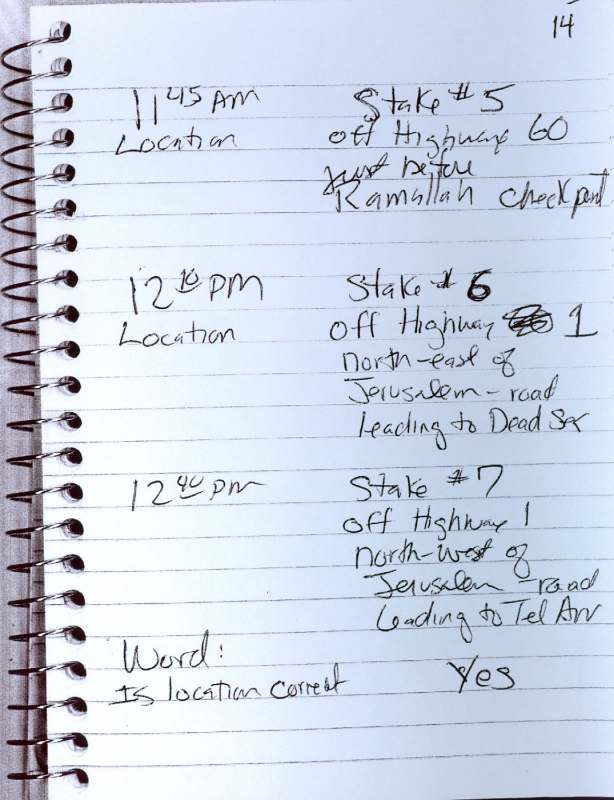 14
11 45 AM Stake #5
Location off Highway 60
just before
Ramallah checkpoint
12 10 PM Stake # 6
Location off Highway 1
north-east of
Jerusalem - road
leading to Dead Sea
12 40 PM Stake #7
off Highway 1
north-west of
Jerusalem - road
leading to Tel Aviv
Word:
Is location correct Yes